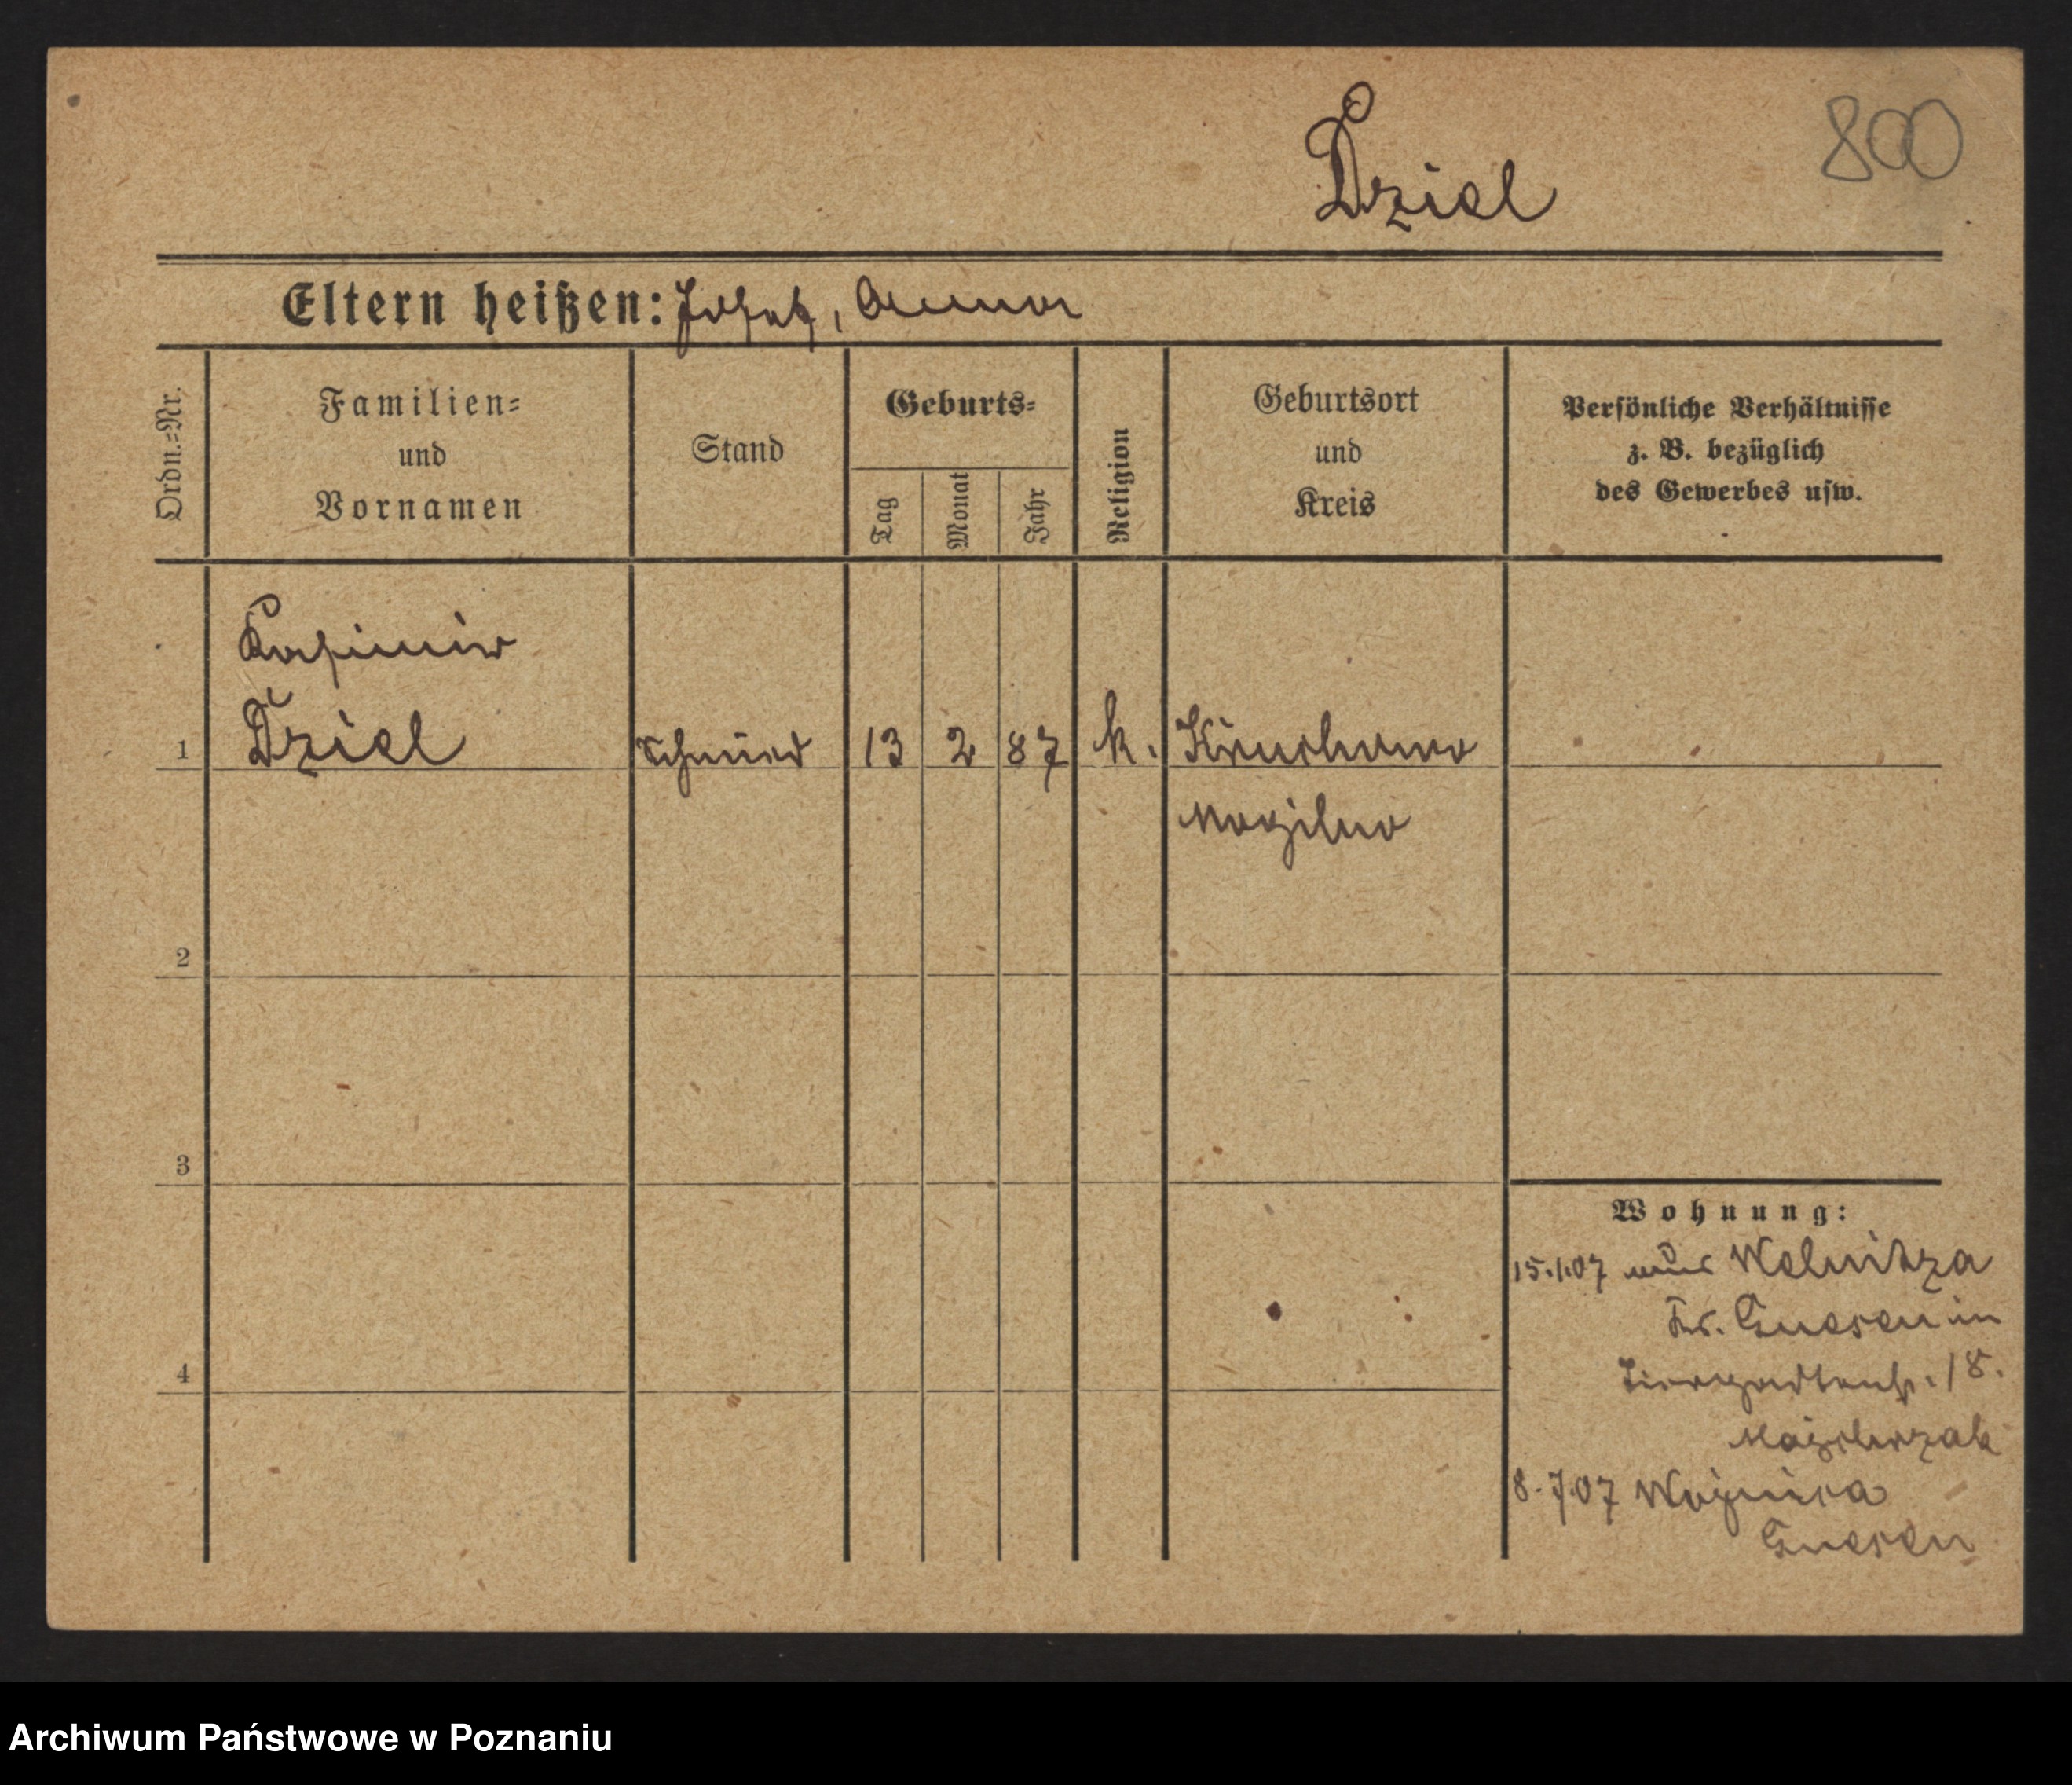 800
Dziel
Eltern heißen: Josef, Anna
Ordn.=Nr.
Familien=
und
Vornamen
Stand
Geburts=
Tag
Monat
Jahr
Religion
Geburtsort
und
Kreis
Persönliche Verhältnisse
z. B. bezüglich
des Gewerbes usw.
Kasimir
1 Dziel Schmied 13 2 87 k. Kruchowo
Mogilno
2
3
4
Wohnung:
15.1.07 aus Welnitza
Kr. Gnesen in
Tiergartenstr. 18.
8.7.07
Gnesen
Archiwum Państwowe w Poznaniu